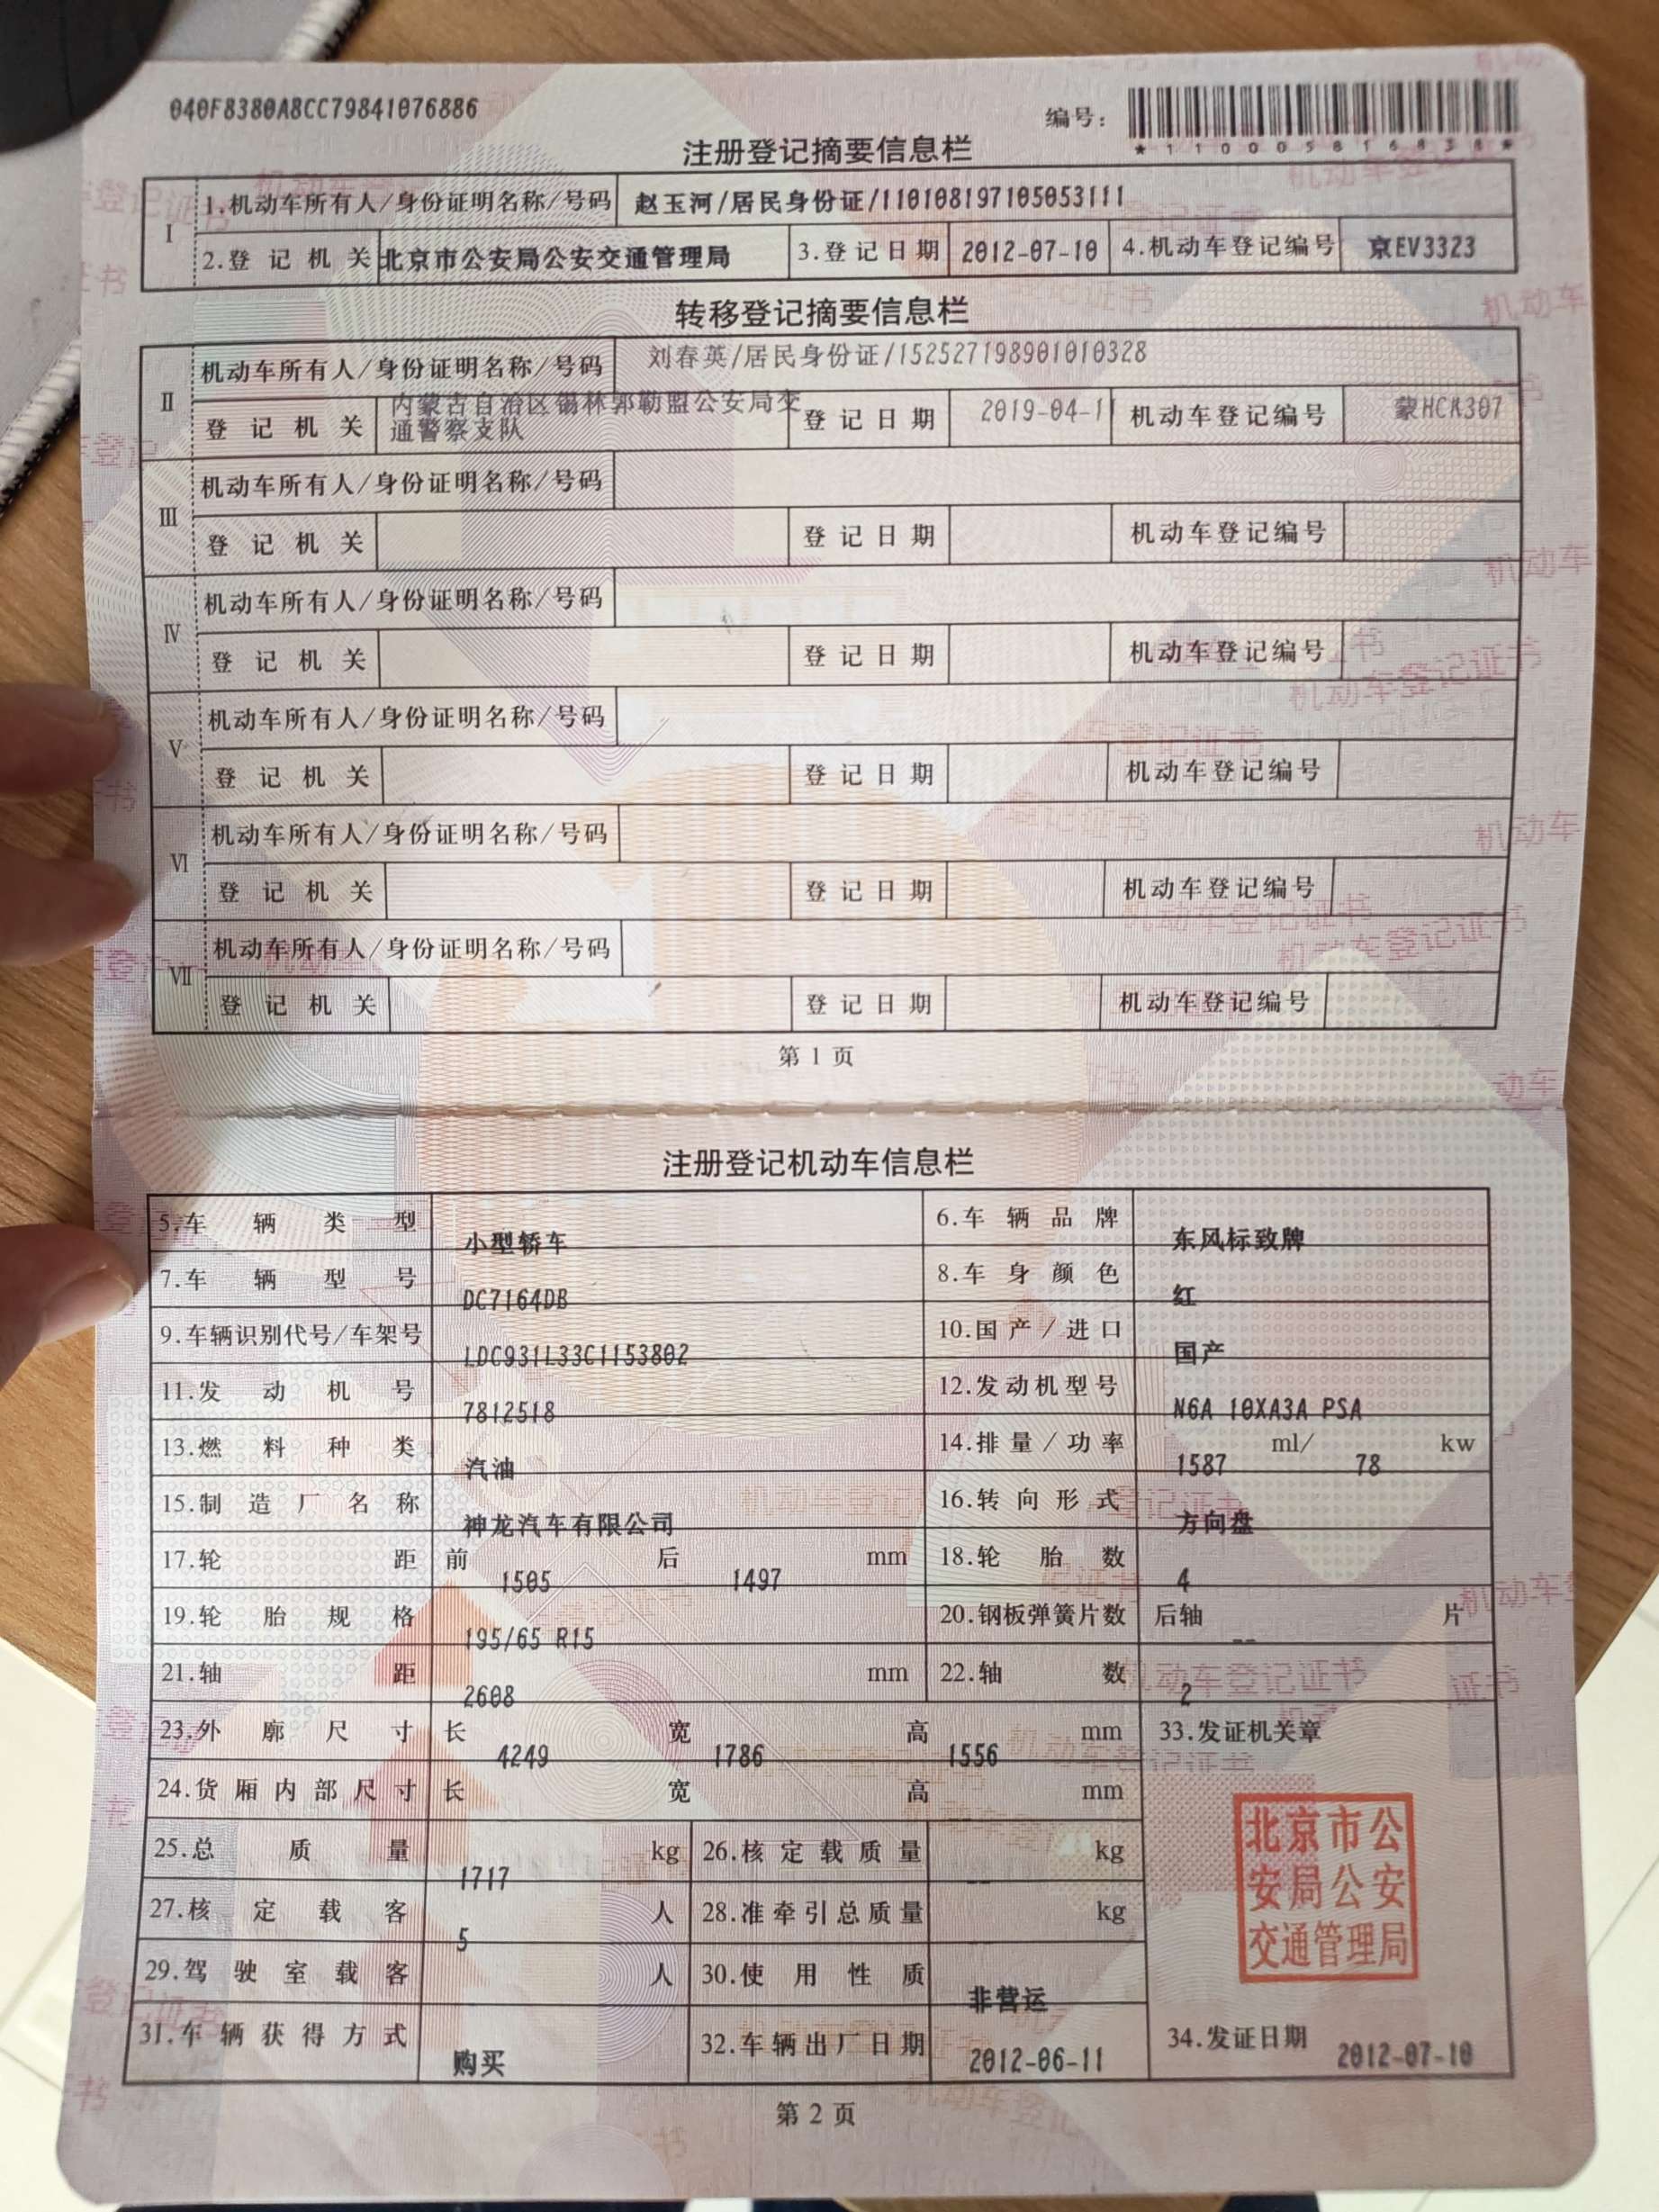 040F8380A8CC79841076886
编号：
*110005816838*
注册登记摘要信息栏
Ⅰ 1.机动车所有人/身份证明名称/号码 赵玉河/居民身份证/110108197105053111
2.登记机关 北京市公安局公安交通管理局 3.登记日期 2012-07-10 4.机动车登记编号 京EV3323
转移登记摘要信息栏
Ⅱ 机动车所有人/身份证明名称/号码 刘春英/居民身份证/152527198901010328
登记机关 内蒙古自治区锡林郭勒盟公安局交通警察支队 登记日期 2019-04-11 机动车登记编号 蒙HCK307
Ⅲ 机动车所有人/身份证明名称/号码
登记机关 登记日期 机动车登记编号
Ⅳ 机动车所有人/身份证明名称/号码
登记机关 登记日期 机动车登记编号
Ⅴ 机动车所有人/身份证明名称/号码
登记机关 登记日期 机动车登记编号
Ⅵ 机动车所有人/身份证明名称/号码
登记机关 登记日期 机动车登记编号
Ⅶ 机动车所有人/身份证明名称/号码
登记机关 登记日期 机动车登记编号
第1页
注册登记机动车信息栏
5.车辆类型 小型轿车 6.车辆品牌 东风标致牌
7.车辆型号 DC7164DB 8.车身颜色 红
9.车辆识别代号/车架号 LDC931L33C1153802 10.国产/进口 国产
11.发动机号 7812518 12.发动机型号 N6A 10XA3A PSA
13.燃料种类 汽油 14.排量/功率 1587 ml/ 78 kw
15.制造厂名称 神龙汽车有限公司 16.转向形式 方向盘
17.轮距 前 1505 后 1497 mm 18.轮胎数 4
19.轮胎规格 195/65 R15 20.钢板弹簧片数 后轴 -- 片
21.轴距 2608 mm 22.轴数 2
23.外廓尺寸 长 4249 宽 1786 高 1556 mm 33.发证机关章
24.货厢内部尺寸 长 宽 高 mm
北京市公
安局公安
交通管理局
25.总质量 1717 kg 26.核定载质量 -- kg
27.核定载客 5 人 28.准牵引总质量 kg
29.驾驶室载客 人 30.使用性质 非营运
31.车辆获得方式 购买 32.车辆出厂日期 2012-06-11 34.发证日期 2012-07-10
第2页